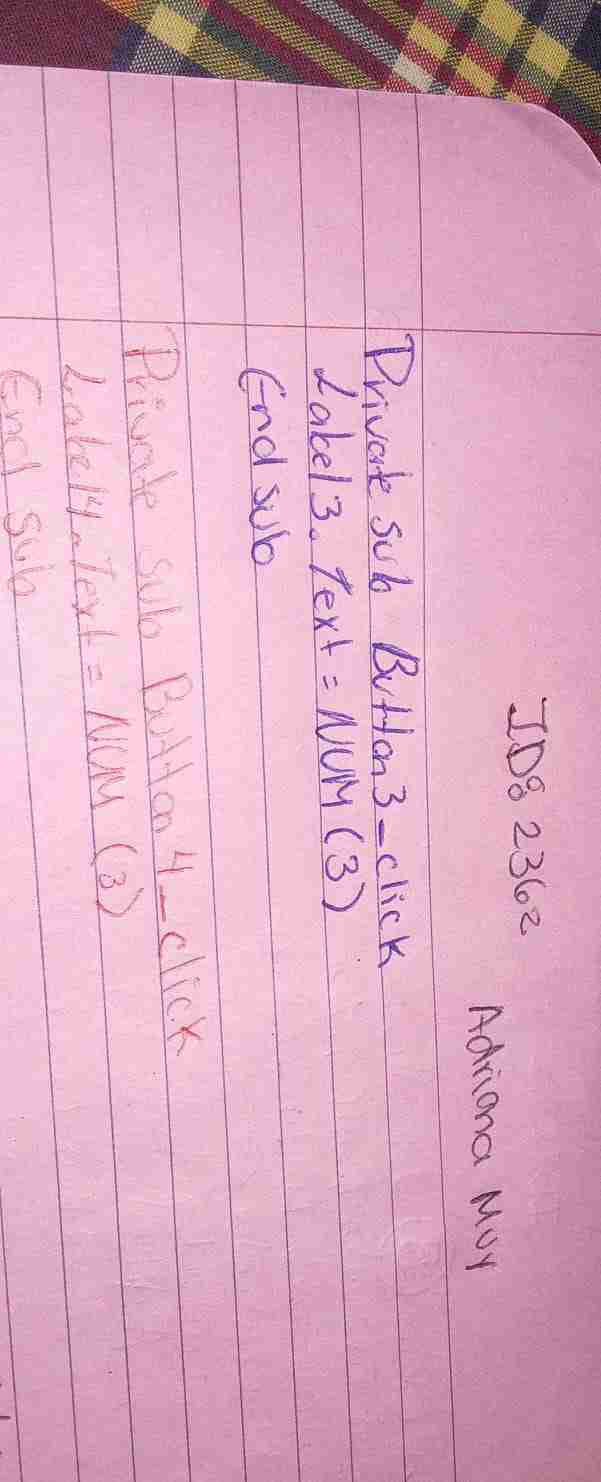 ID: 2362
Adriana Muy
Private sub Button3_click
Label3.Text = NUM (3)
End sub
Private sub Button4_click
Label4.Text = NUM (3)
End sub